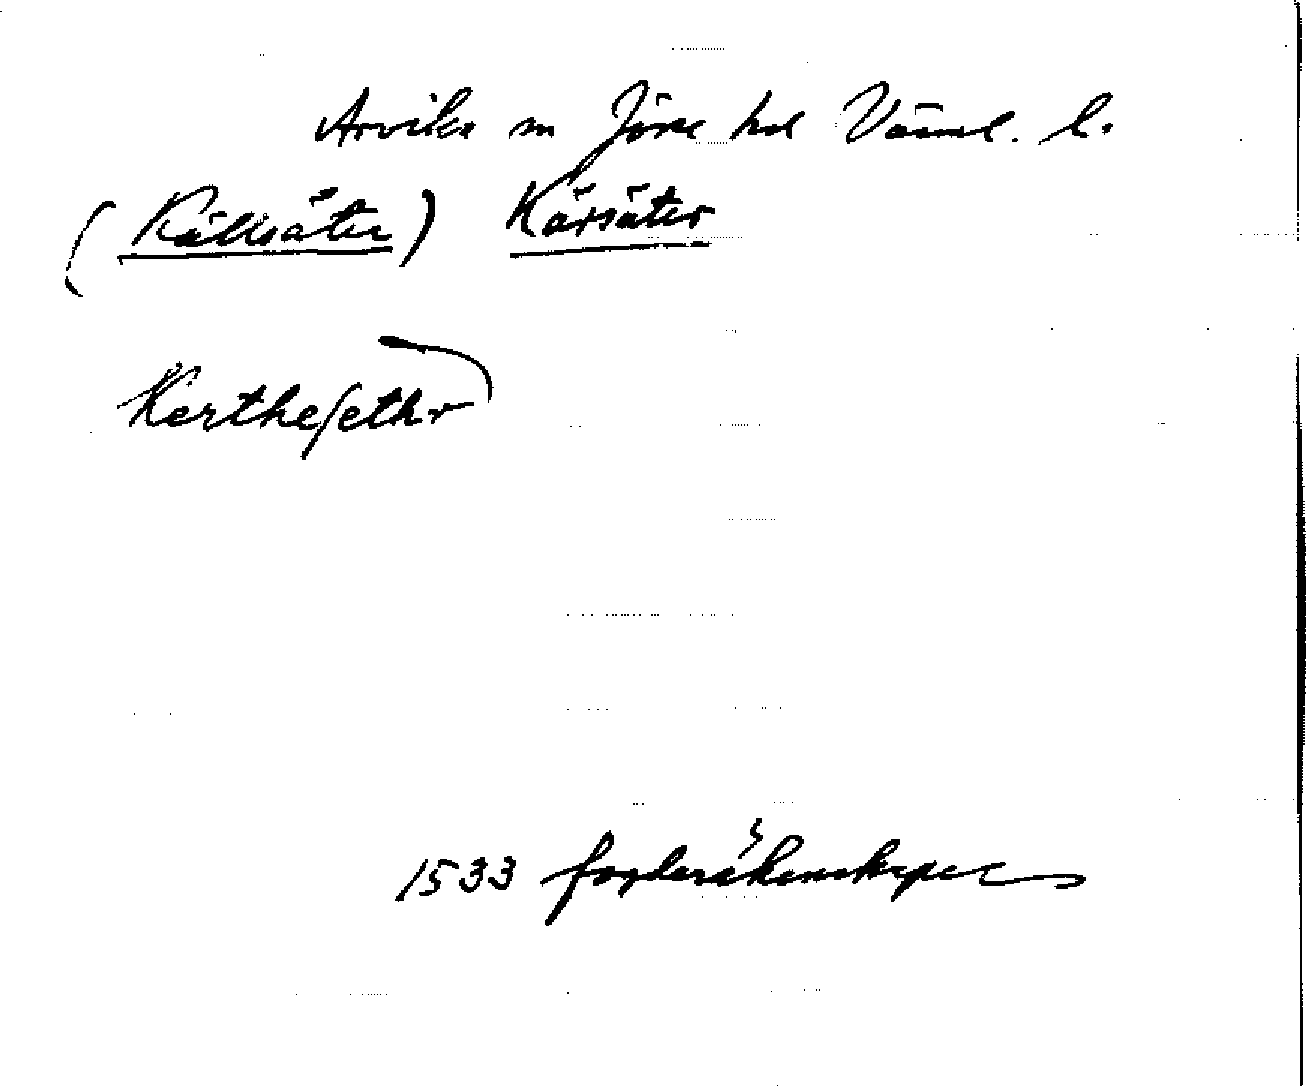 Arvika sn Jösse hd Värml. l.
(Källsäter) Kärsäter
Kerthesethr
1533 fogderäkenskaper